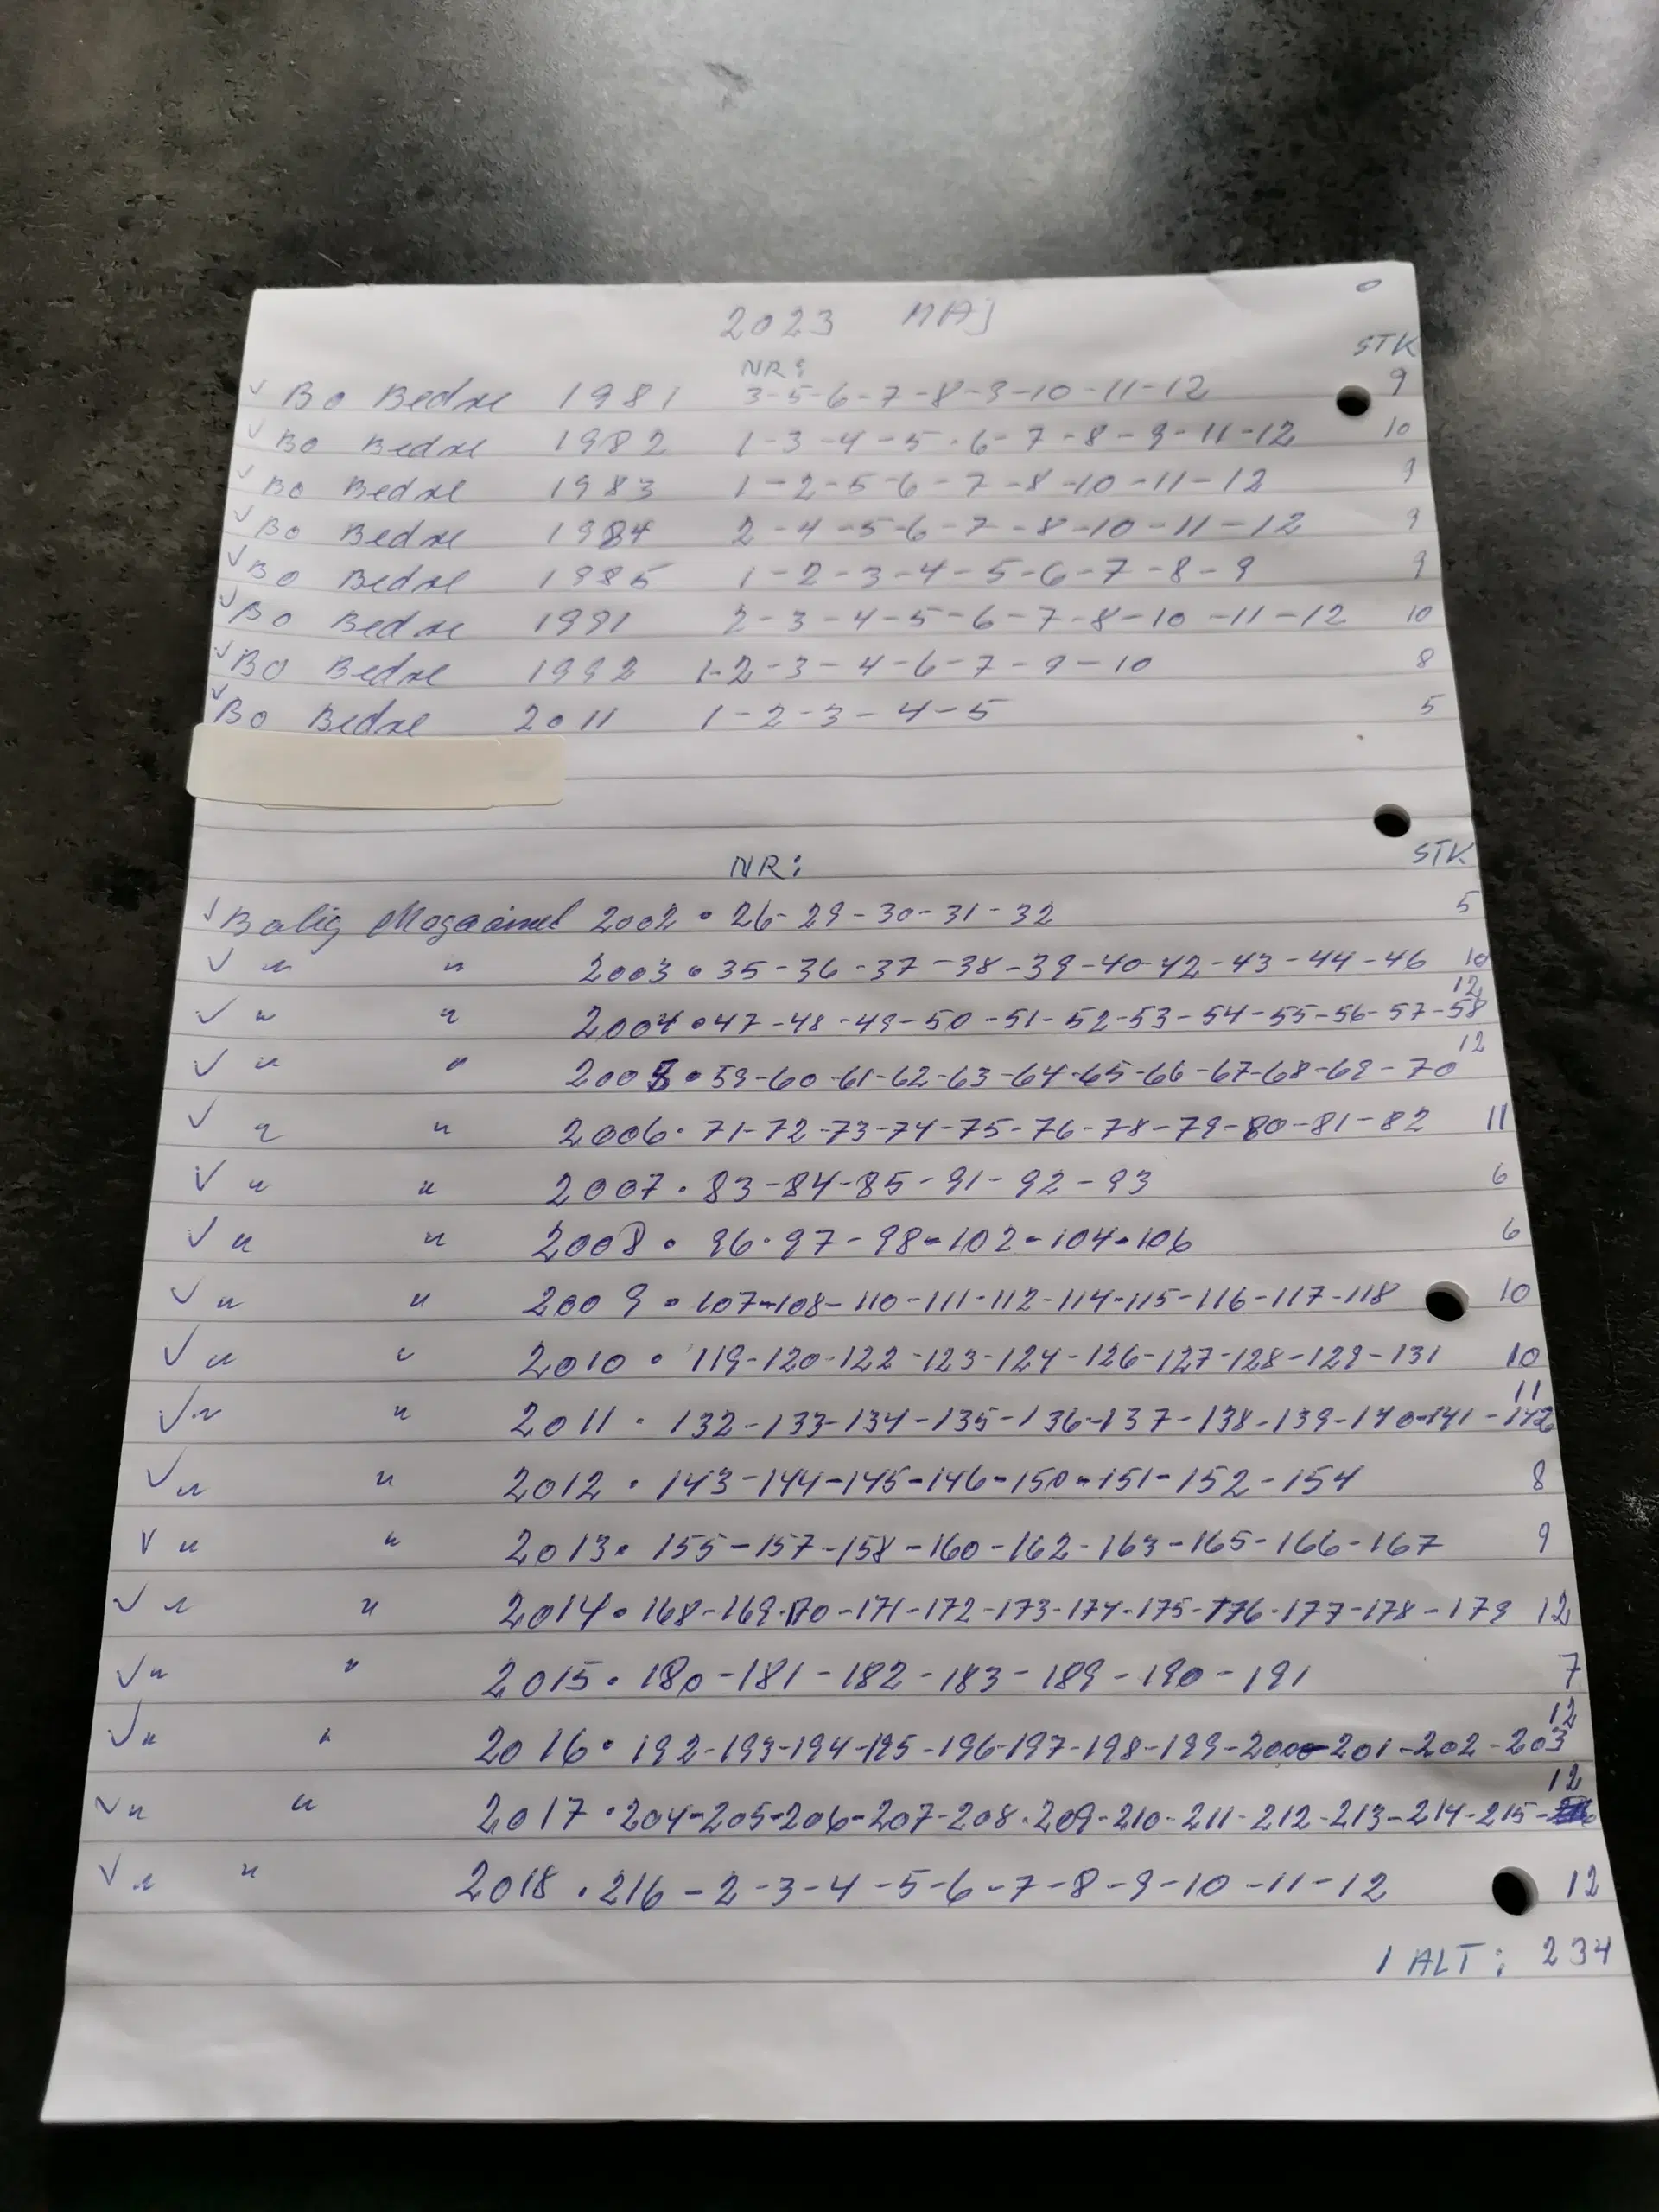 2023 MAJ
NR: STK
✓ Bo Bedre 1981 3-5-6-7-8-9-10-11-12 9
✓ Bo Bedre 1982 1-3-4-5-6-7-8-9-11-12 10
✓ Bo Bedre 1983 1-2-5-6-7-8-10-11-12 9
✓ Bo Bedre 1984 2-4-5-6-7-8-10-11-12 9
✓ Bo Bedre 1985 1-2-3-4-5-6-7-8-9 9
✓ Bo Bedre 1991 2-3-4-5-6-7-8-10-11-12 10
✓ Bo Bedre 1992 1-2-3-4-6-7-9-10 8
✓ Bo Bedre 2011 1-2-3-4-5 5
NR: STK
✓ Bolig Magasinet 2002 • 26-29-30-31-32 5
✓ " " 2003 • 35-36-37-38-39-40-42-43-44-46 10
✓ " " 2004 • 47-48-49-50-51-52-53-54-55-56-57-58 12
✓ " " 2005 • 59-60-61-62-63-64-65-66-67-68-69-70 12
✓ " " 2006 • 71-72-73-74-75-76-78-79-80-81-82 11
✓ " " 2007 • 83-84-85-91-92-93 6
✓ " " 2008 • 96-97-98-102-104-106 6
✓ " " 2009 • 107-108-110-111-112-114-115-116-117-118 10
✓ " " 2010 • 119-120-122-123-124-126-127-128-129-131 10
✓ " " 2011 • 132-133-134-135-136-137-138-139-140-141-142 11
✓ " " 2012 • 143-144-145-146-150-151-152-154 8
✓ " " 2013 • 155-157-158-160-162-163-165-166-167 9
✓ " " 2014 • 168-169-170-171-172-173-174-175-176-177-178-179 12
✓ " " 2015 • 180-181-182-183-189-190-191 7
✓ " " 2016 • 192-193-194-195-196-197-198-199-200-201-202-203 12
✓ " " 2017 • 204-205-206-207-208-209-210-211-212-213-214-215- 12
✓ " " 2018 • 216-2-3-4-5-6-7-8-9-10-11-12 12
I ALT: 234